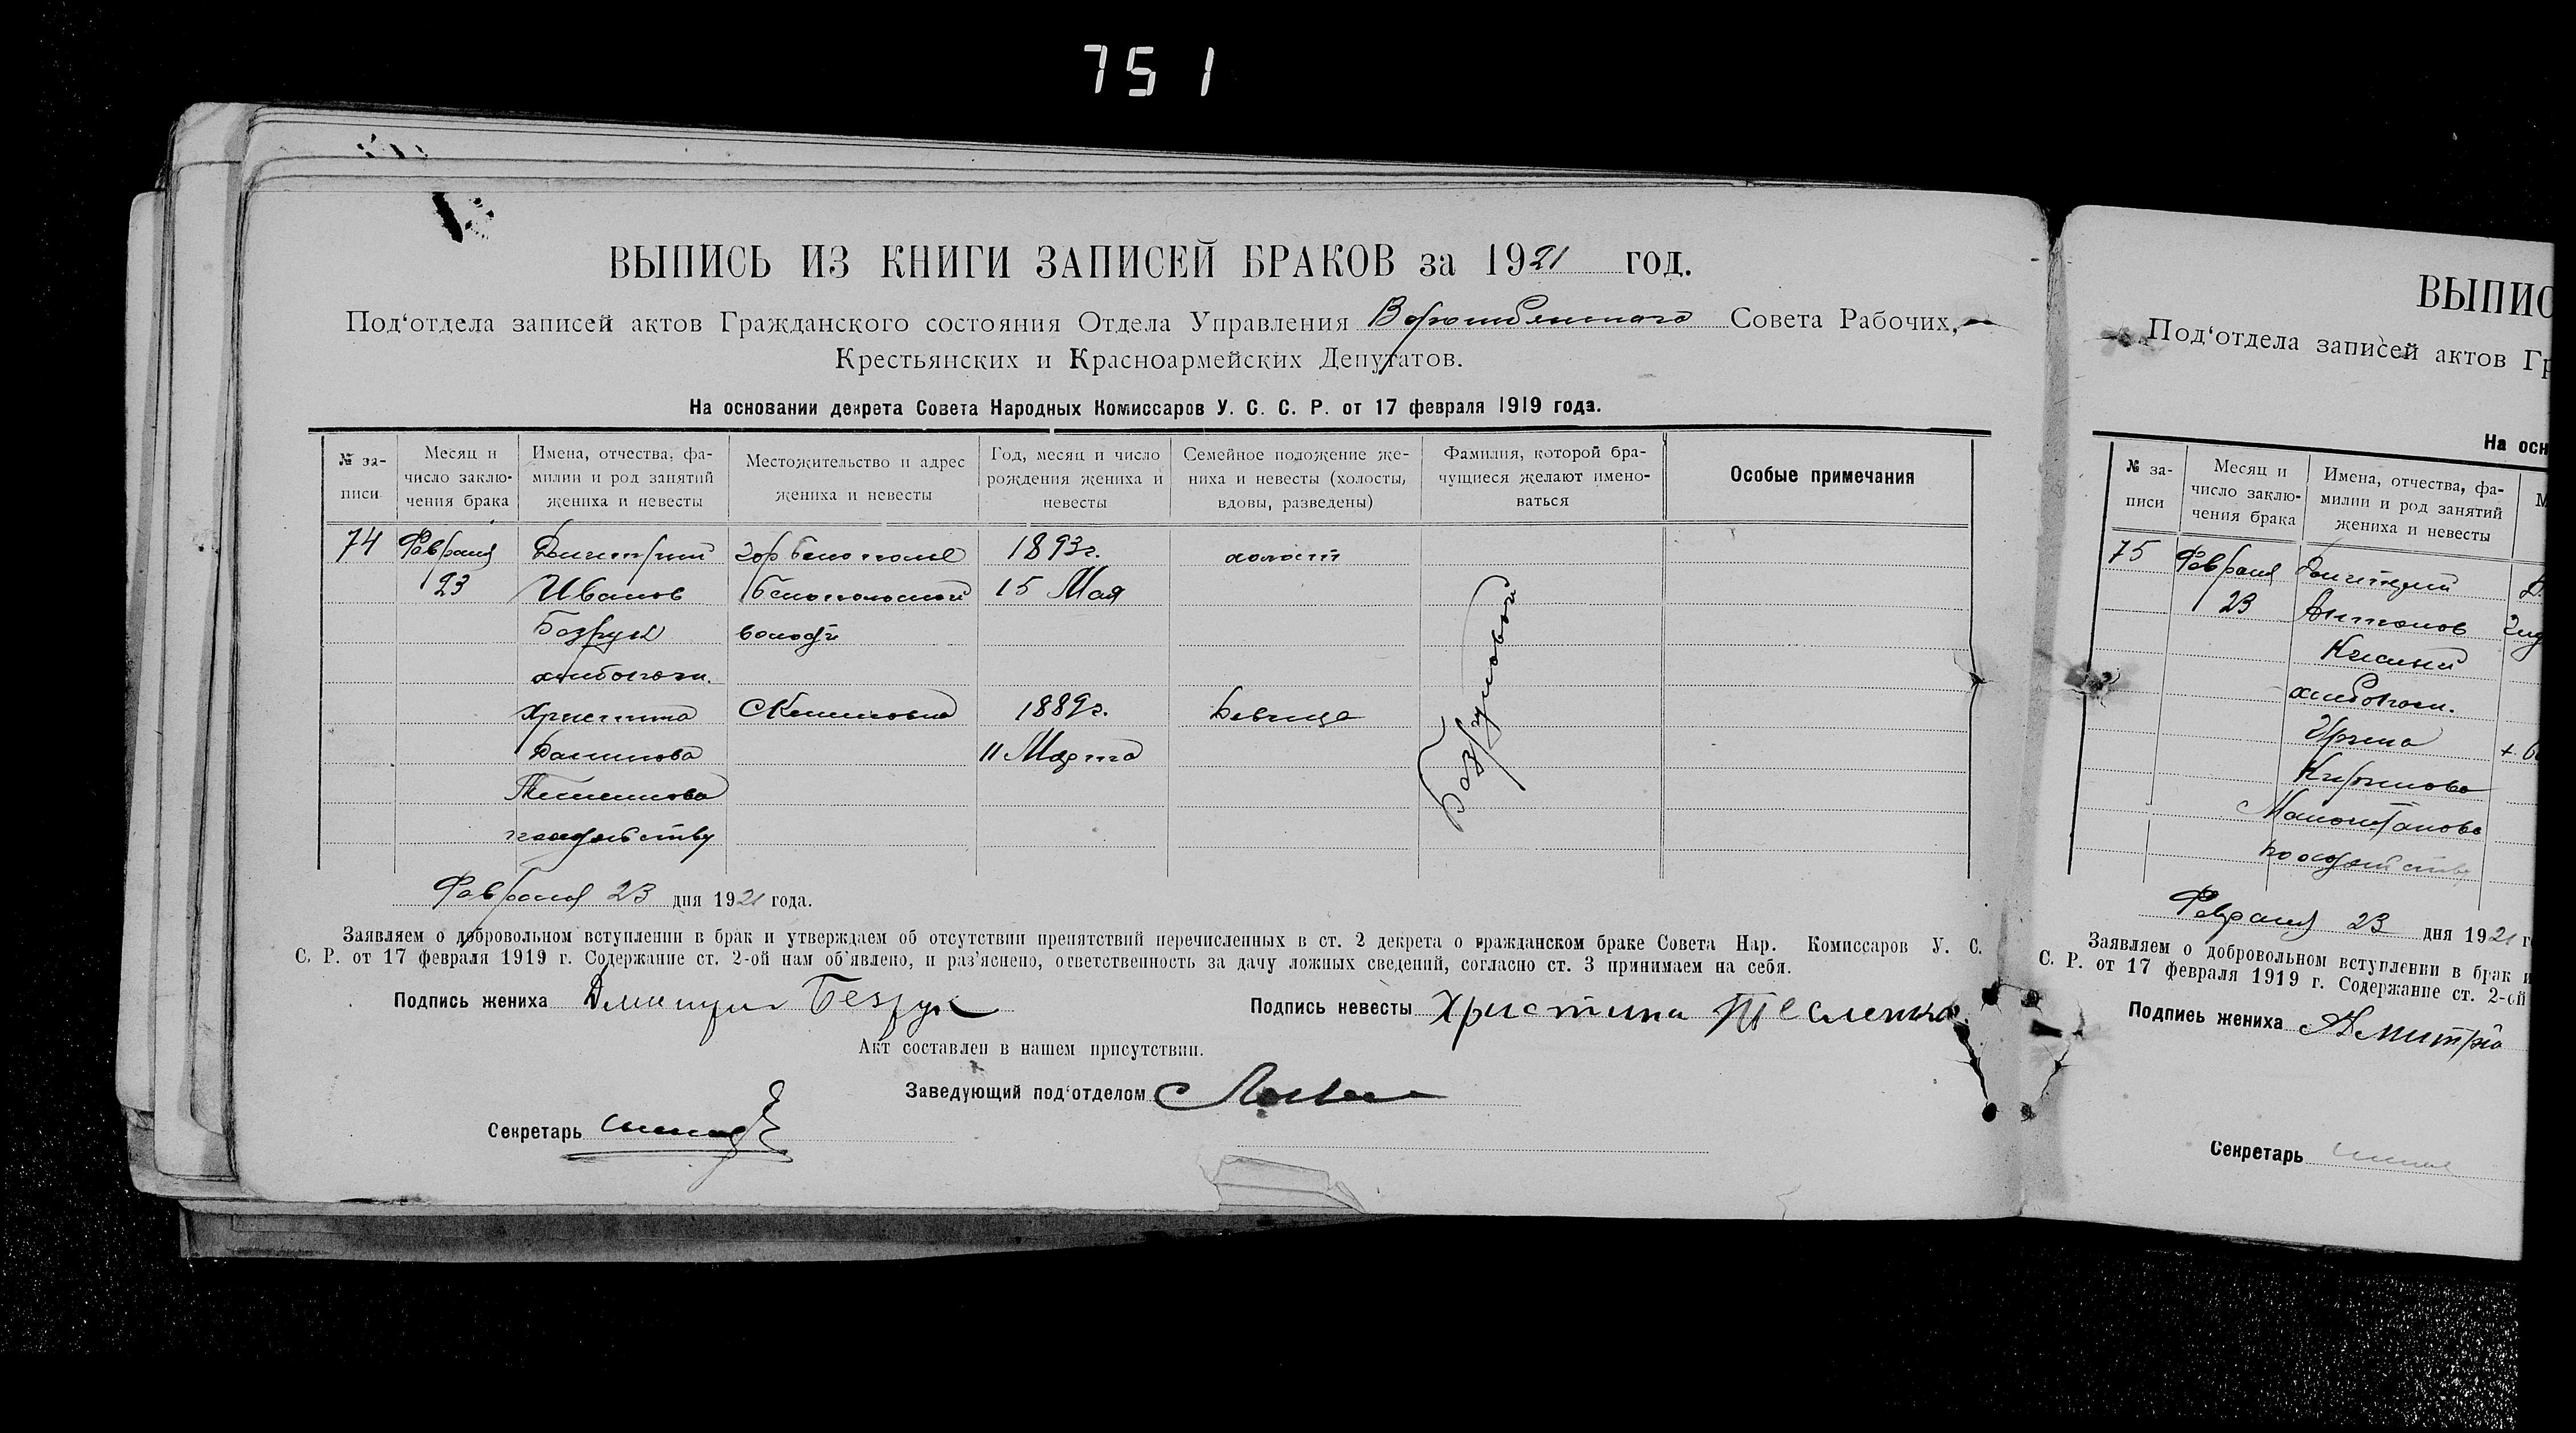 751
ВЫПИСЬ ИЗ КНИГИ ЗАПИСЕЙ БРАКОВ за 1921 год.
Под‘отдела записей актов Гражданского состояния Отдела Управления Совета Рабочих,
Крестьянских и Красноармейских Депутатов.
На основании декрета Совета Народных Комиссаров У. С. С. Р. от 17 февраля 1919 года.
№ за-
писи
Месяц и
число заклю-
чения брака
Имена, отчества, фа-
милии и род занятий
жениха и невесты
Местожительство и адрес
жениха и невесты
Год, месяц и число
рождения жениха и
невесты
Семейное положение же-
ниха и невесты (холосты,
вдовы, разведены)
Фамилия, которой бра-
чущиеся желают имено-
ваться
Особые примечания
74 Февраля Димитрий 1893г. холост
23 Иванов 15 Мая
Базрук волости
хлебопаш.
Христина 1889г. девица
Данилова 11 Марта
Тесленкова
Февраля 23 дня 1921 года.
Заявляем о добровольном вступлении в брак и утверждаем об отсутствии препятствий перечисленных в ст. 2 декрета о гражданском браке Совета Нар. Комиссаров У. С.
С. Р. от 17 февраля 1919 г. Содержание ст. 2-ой нам об‘явлено, и раз‘яснено, ответственность за дачу ложных сведений, согласно ст. 3 принимаем на себя.
Подпись жениха Дмитрий Безрук
Подпись невесты Христина Тесленко
Акт составлен в нашем присутствии.
Заведующий под‘отделом
Секретарь
ВЫПИС
Под‘отдела записей актов Гр
На осн
№ за-
писи
Месяц и
число заклю-
чения брака
Имена, отчества, фа-
милии и род занятий
жениха и невесты
М
75 Февраля Димитрий
23 Антонов
хлебопаш.
Февраля 23 дня 1921 г
Заявляем о добровольном вступлении в брак и
С. Р. от 17 февраля 1919 г. Содержание ст. 2-ой
Подпись жениха Дмитрій
Секретарь